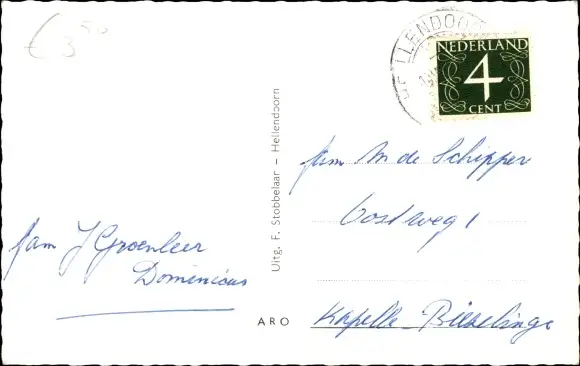 € 3,50
HELLENDOORN
NEDERLAND
4
CENT
fam M de Schipper
Oostweg 1
Kapelle Biezelinge
fam J Groenleer
Domenicus
Uitg. F. Stobbelaar – Hellendoorn
ARO